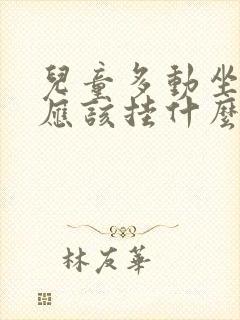 兒童多動坐
應該挂什麼
林友華